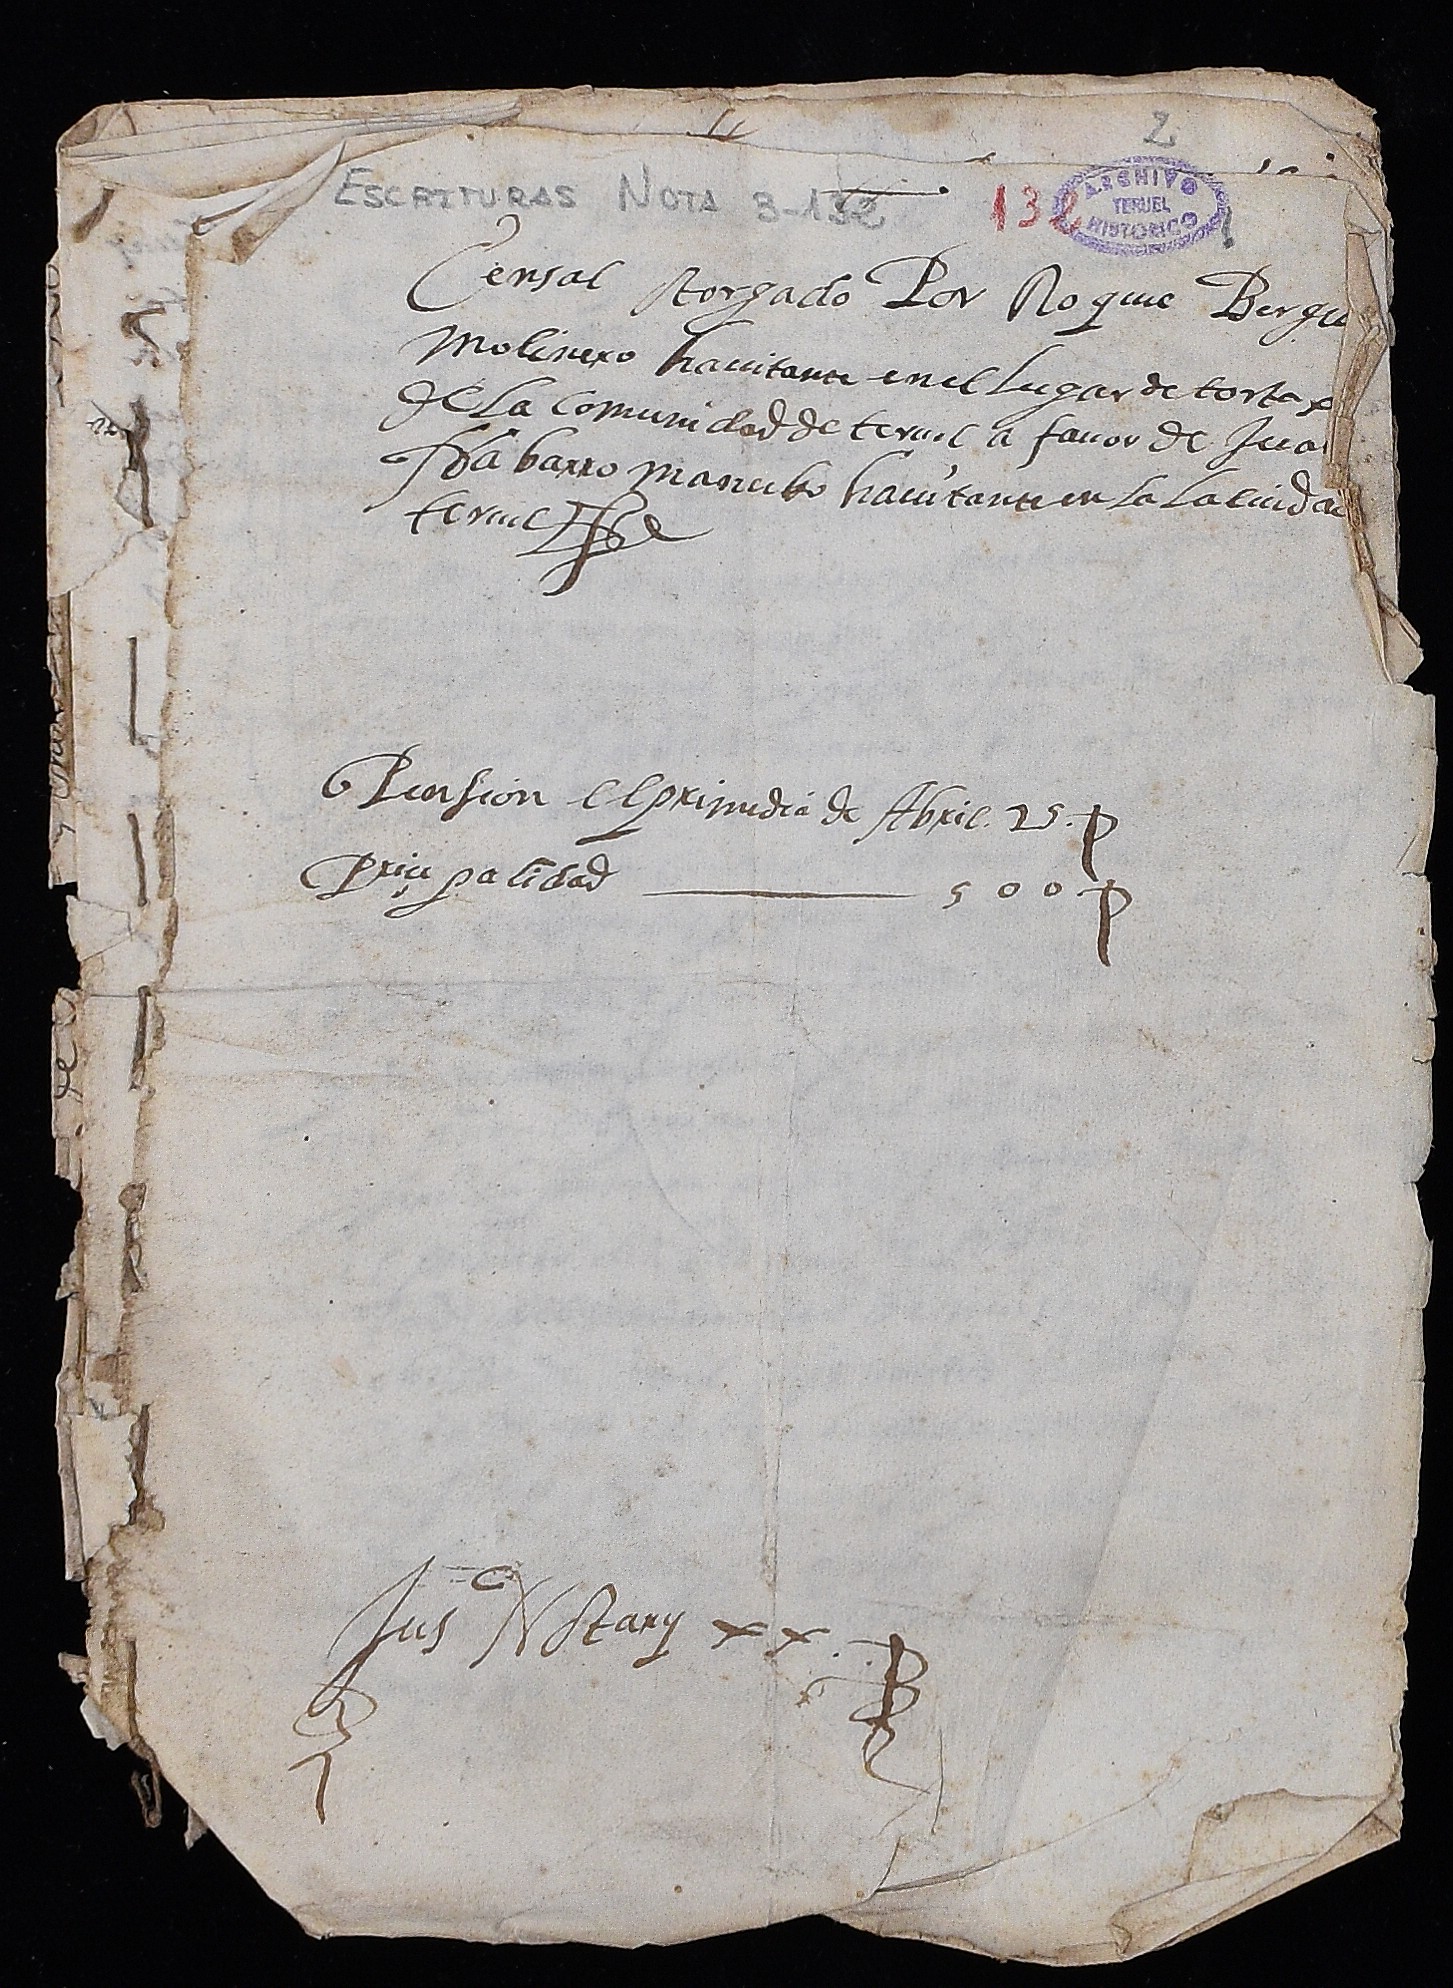 2
ESCRITURAS NOTA 3-132
132
ARCHIVO
TERUEL
HISTORICO
Censal otorgado Por Roque Bergu
molinero hauitante en el lugar de torta
de La Comunidad de teruel a fauor de Jua
Nabarro mancebo hauitante en La La ciudad
teruel
Pension el primr dia de Abril. 25. p
Prinpalidad 500 p
Jus Notary